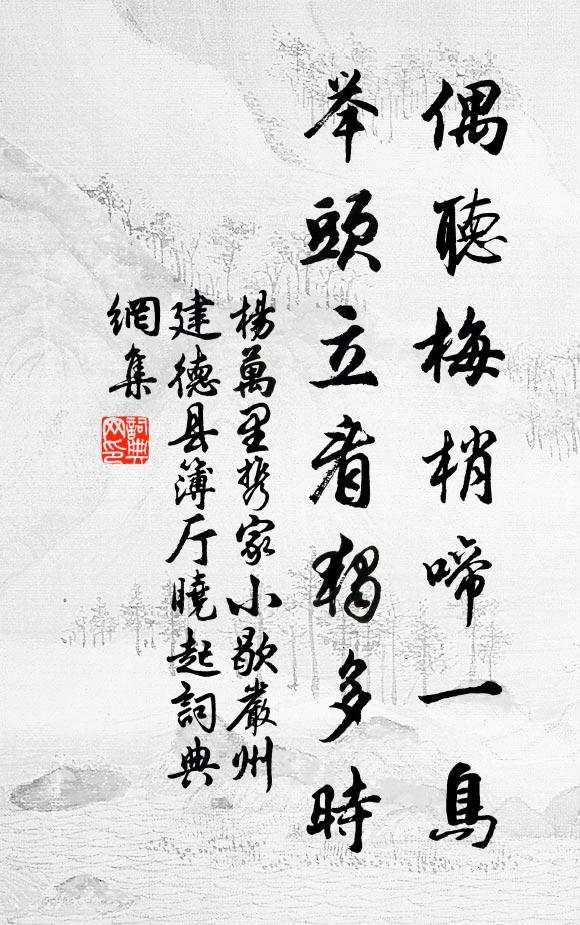 偶聽梅梢啼一鳥
举頭立看獨多時
楊萬里携家小歇嚴州
建德县簿厅曉起詞典
網集
詞典
网印